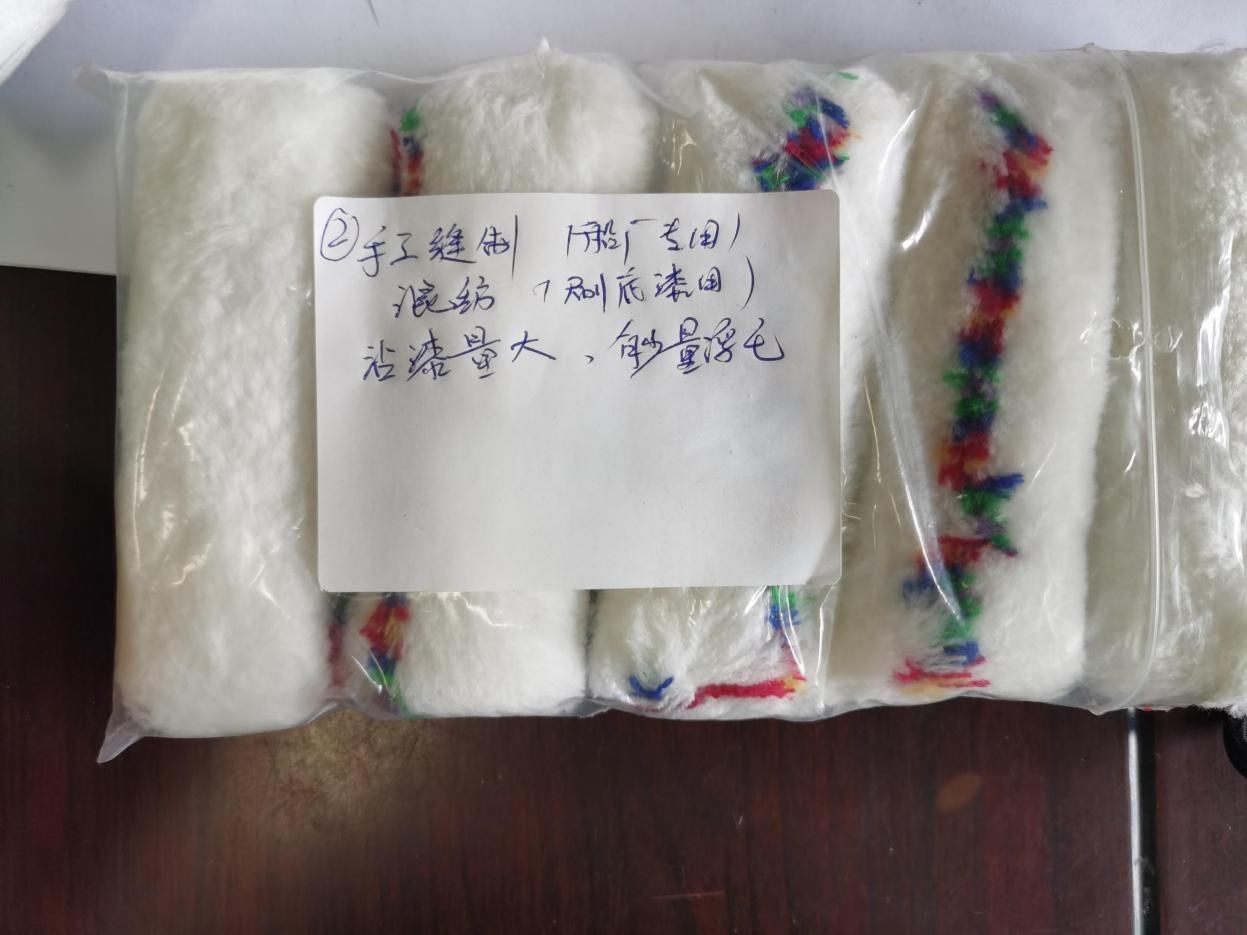 ②手工缝制 (船厂专用)
混纺 (刷底漆用)
沾漆量大、有少量浮毛